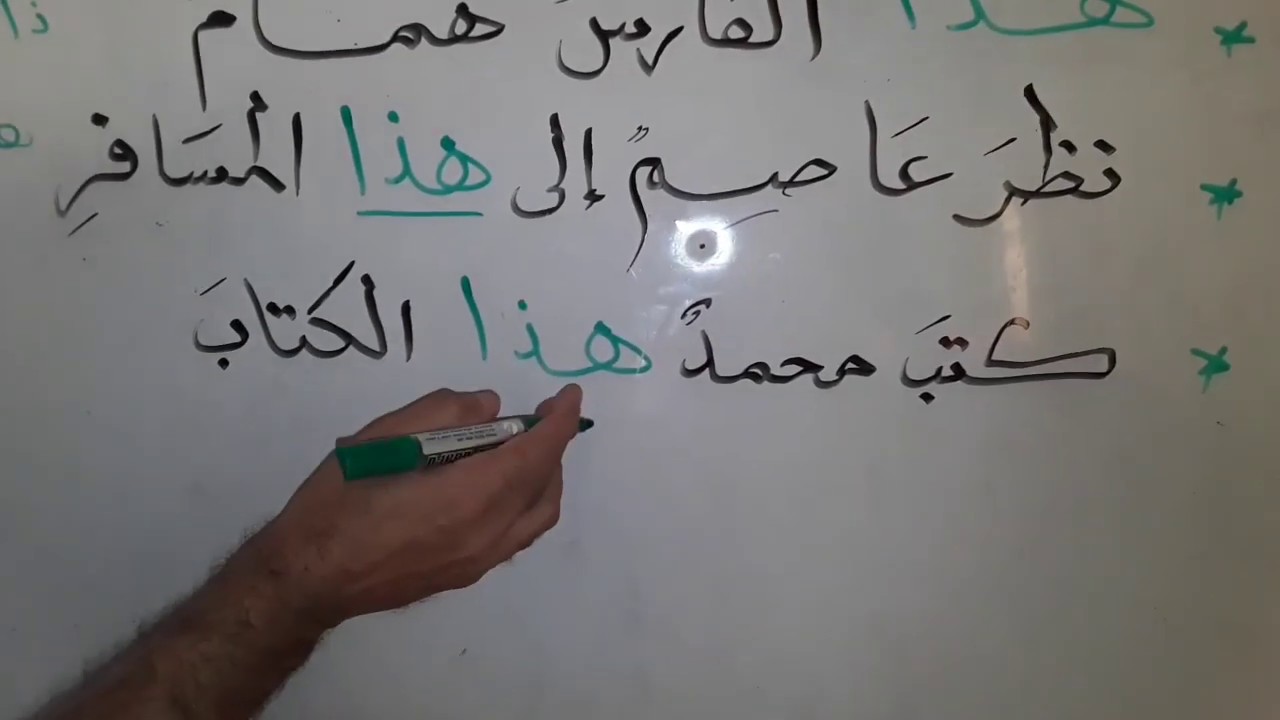 هذا الفارسَ همام ذا
نظرَ عَاصِمٌ إلى هذا المسَافرِ
كتبَ محمدٌ هذا الكتابَ